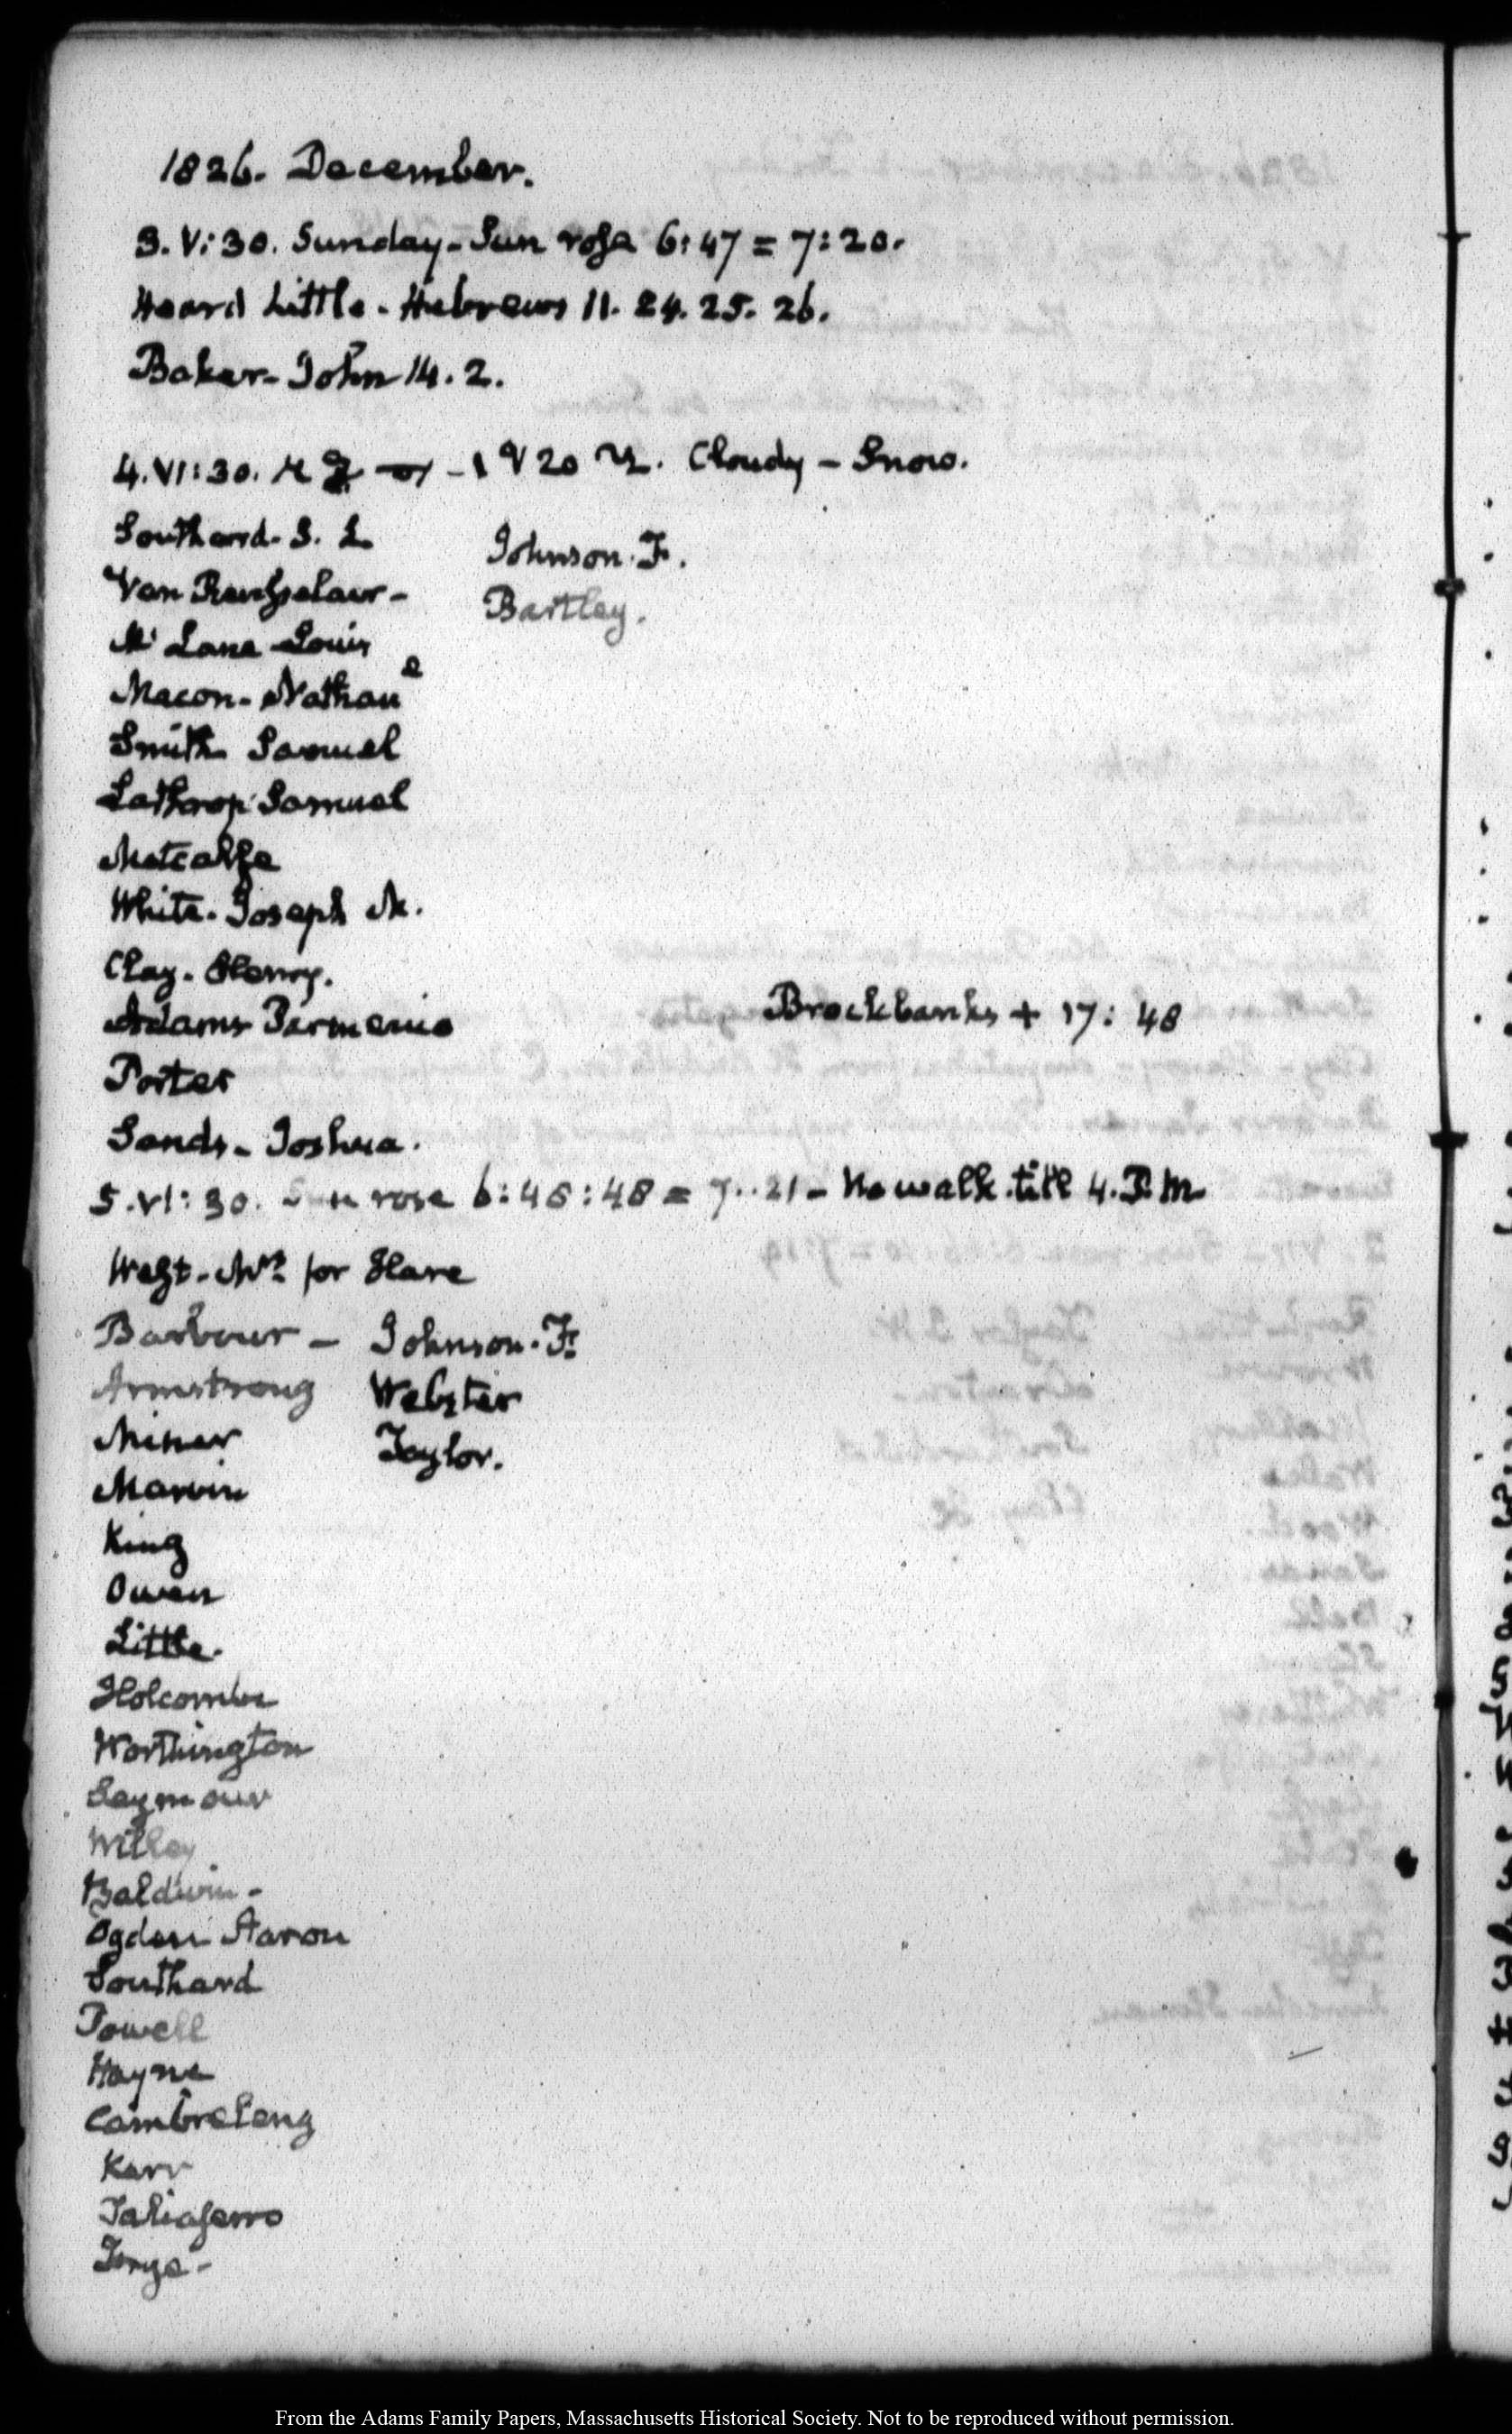 1826. December.
3. V:30. Sunday - Sun rose 6:47 = 7:20.
Heard Little - Hebrews 11. 24. 25. 26.
Baker - John 14. 2.
4. VI:30. Cloudy - Snow.
Southard. S. L.
Van Rensselaer -
Mc Lane Louis
Macon - Nathanl
Smith Samuel
Lathrop Samuel
Metcalfe
White. Joseph M.
Clay. Henry.
Adams Parmenio
Porter
Sands - Joshua.
Johnson. F.
Bartley.
Brockbanks + 17: 48
5. VI:30. Sun rose 6:46:48 = 7..21 - No walk till 4. P.M.
West. Mr. for Hare
Barbour -
Armstrong
Miner
Marvin
King
Owen
Little.
Holcombe
Worthington
Seymour
Willey
Baldwin -
Ogden Aaron
Southard
Powell
Hayne
Cambreleng
Kerr
Taliaferro
Johnson. F.
Webster
Taylor.
From the Adams Family Papers, Massachusetts Historical Society. Not to be reproduced without permission.